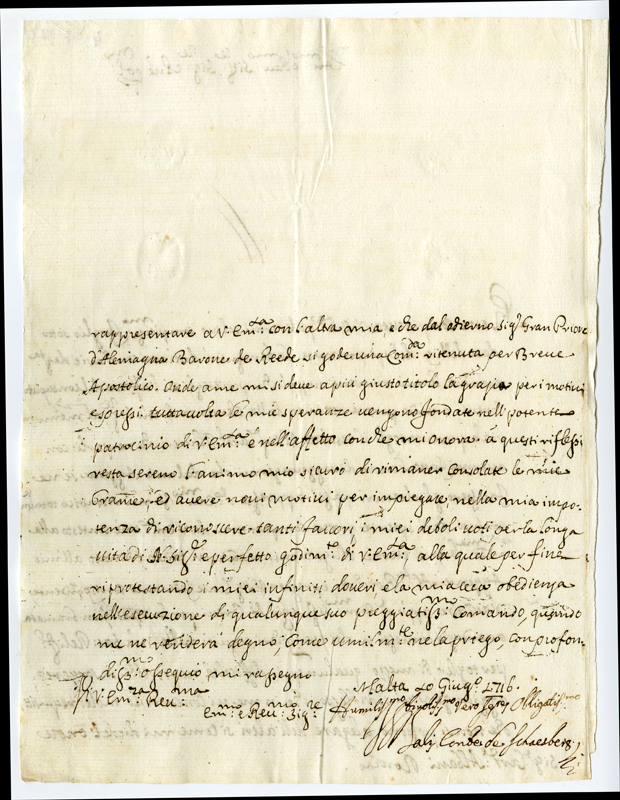 rappresentare a V. Em.za con l'altra mia e che dal odierno sig.r Gran Priore
d'Alemagna Barone de Reede si gode una Com.da ritenuta per Breve
Apostolico. Onde a me mi si deve a piu giusto titolo la grazia per i motivi
espressi. tuttavolta le mie speranze vengono fondate nell'potente
patrocinio di V. Em.za e nell'affetto con che mi onora. a questi riflessi
resta sereno l'animo mio sicuro di rimaner consolate le mie
brame, ed avere novi motivi per impiegare nella mia impo-
tenza di riconoscere tanti favori i miei deboli voti per la longa
vita di e perfetto godim.to di V. Em.za, alla quale per fine
riprotestando i miei infiniti doveri e la mia ceca obedienza
nell'esecuzione di qualunque suo preggiatiss.mo Comando, quando
me ne renderà degno, come umilm.te ne la priego, con profon-
diss.mo ossequio mi rassegno
V. Em.za Rev.ma
Malta 20 Giug.o 1716.
Em.mo e Rev.mo Sig.re
Humiliss.mo Divotiss.mo Vero Ser.re Obligatiss.mo
Bali Conte de Schaesberg